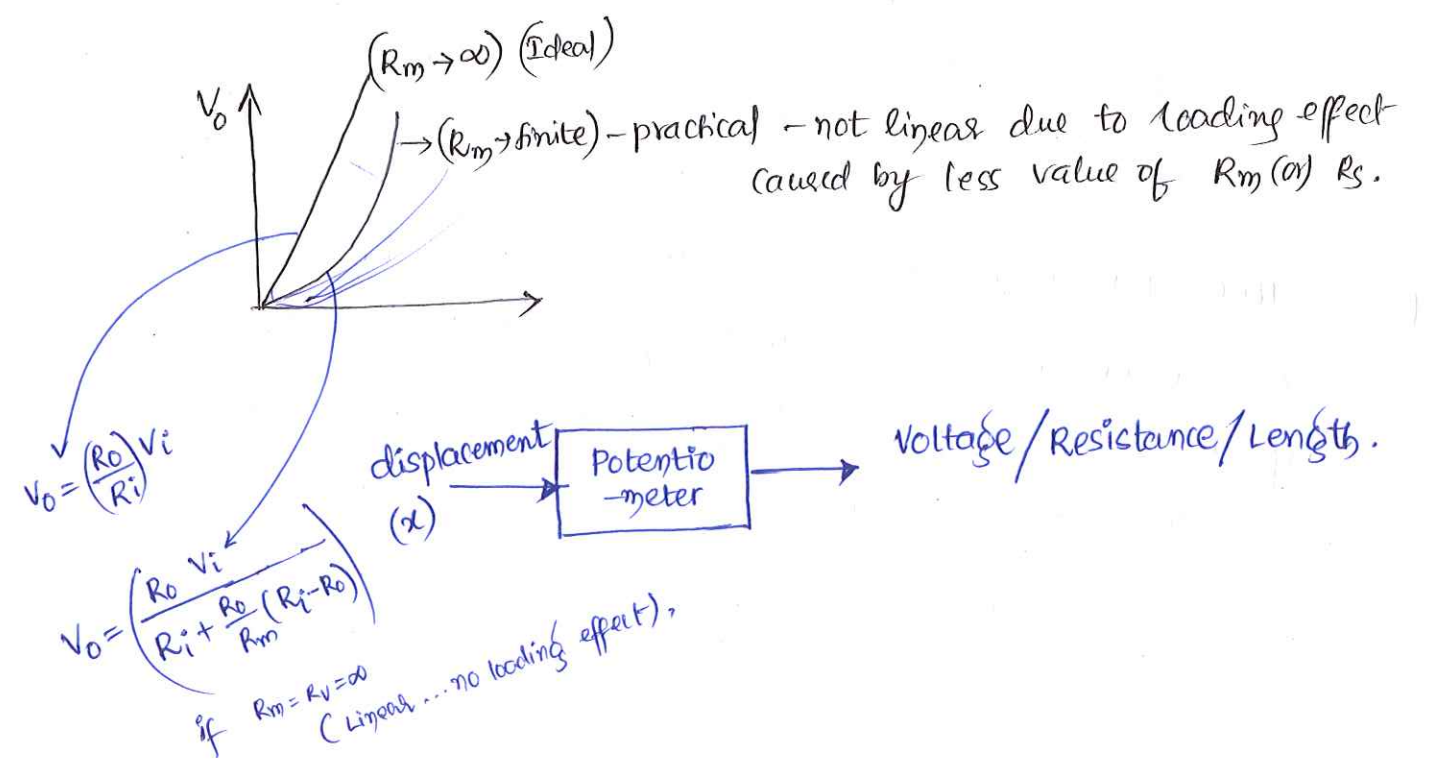 (Rm→∞) (Ideal)
Vo
→(Rm→finite) – practical – not linear due to loading effect
caused by less value of Rm (or) Rs.
Vo = (Ro/Ri) Vi
displacement
(x)
Potentio
-meter
Voltage/Resistance/Length.
Vo = (Ro Vi / Ri + Ro/Rm (Ri-Ro))
if Rm = Rv = ∞
(Linear ... no loading effect),